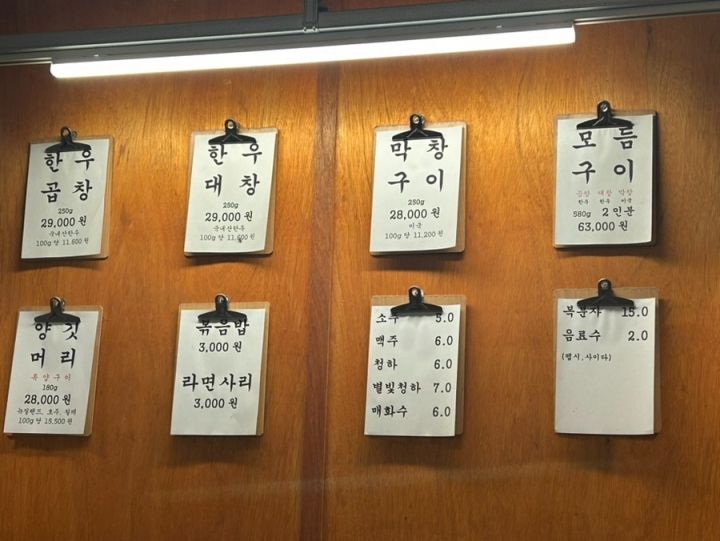 한우
곱창
250g
29,000 원
국내산한우
100g 당 11,600원
한우
대창
250g
29,000 원
국내산한우
100g 당 11,600원
막창
구이
250g
28,000 원
미국
100g 당 11,200원
모듬
구이
곱창 대창 막창
한우 한우 미국
580g 2인분
63,000 원
양깃
머리
특양구이
180g
28,000 원
뉴질랜드, 호주, 칠레
100g 당 15,500원
볶음밥
3,000 원
라면사리
3,000 원
소주 5.0
맥주 6.0
청하 6.0
별빛청하 7.0
매화수 6.0
복분자 15.0
음료수 2.0
(펩시,사이다)